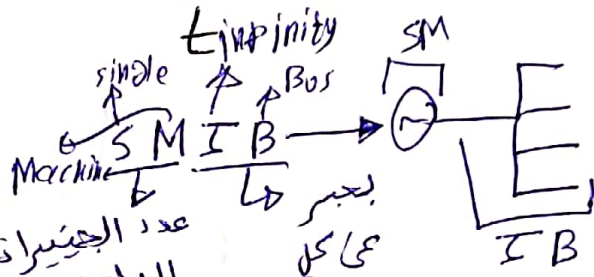 infinity
SM
single
Bus
Machine SMIB
~
عدد الجينيرات
بعبر
IB